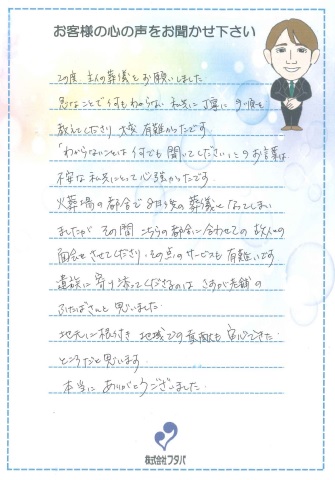 お客様の心の声をお聞かせ下さい
この度 主人の葬儀をお願いしました
急なことで何もわからない私共に丁寧に
教えてくださり 大変 有難かったです
「わからないことは何でも聞いてください」とのお言葉は
不安な私共にとって心強かったです
火葬場の都合で 後の葬儀となってしまい
ましたが その間こちらの都合に合わせての 故人への
面会をさせてくださり その点のサービスも有難いです
遺族に寄り添ってくださるのは さすが老舗の
ふたばさんと思いました
地元に根付き 地域での 安心できた
ところだと思います
本当に ありがとうございました
株式会社フタバ